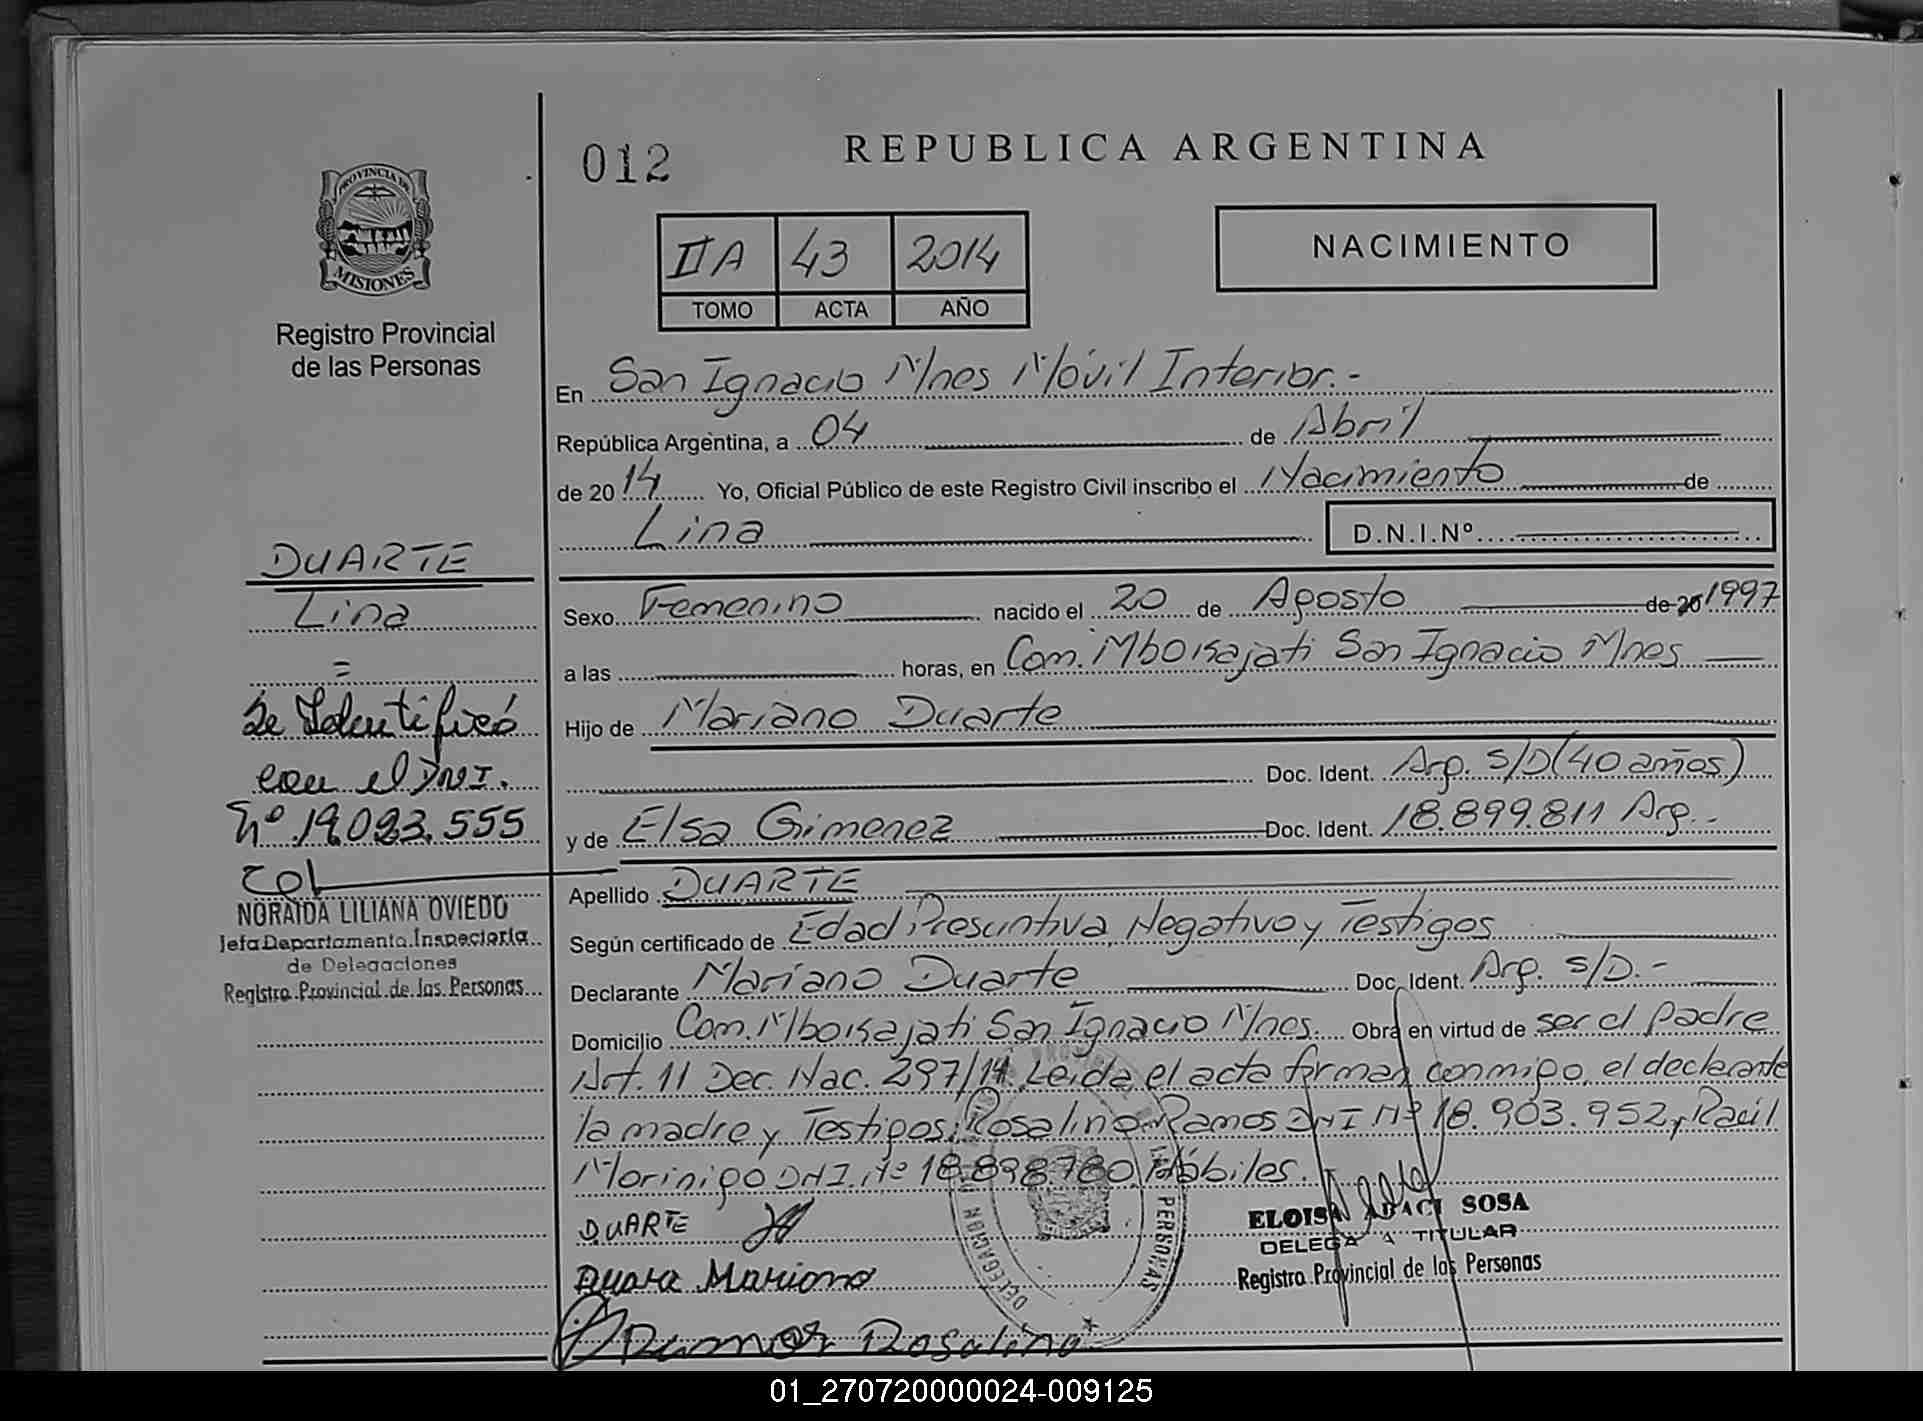 012
REPUBLICA ARGENTINA
PROVINCIA DE
MISIONES
Registro Provincial
de las Personas
IIA 43 2014
TOMO ACTA AÑO
NACIMIENTO
En San Ignacio Mnes Móvil Interior.-
República Argentina, a 04 de Abril
de 2014 Yo, Oficial Público de este Registro Civil inscribo el Nacimiento de
Lina D.N.I.Nº
DUARTE
Lina
=
Se Identificó
con el DNI.
Nº 19.023.555
NORAIDA LILIANA OVIEDO
Jefa Departamento Inspectoría
de Delegaciones
Registro Provincial de las Personas
Sexo Femenino nacido el 20 de Agosto de 20 1997
a las horas, en Com. Mboisajati San Ignacio Mnes
Hijo de Mariano Duarte
Doc. Ident. Arg. S/D (40 años)
y de Elsa Gimenez Doc. Ident. 18.899.811 Arg.-
Apellido DUARTE
Según certificado de Edad Presuntiva, Negativo y Testigos
Declarante Mariano Duarte Doc. Ident. Arg. S/D.-
Domicilio Com. Mboisajati San Ignacio Mnes. Obra en virtud de ser el Padre
Art. 11 Dec. Nac. 297/14. Leida el acta firman conmigo, el declarante
la madre y Testigos: Rosalino Ramos DNI Nº 18.903.952 y Raúl
Morinigo DNI. Nº 18.898.780 Hábiles.
DUARTE
Mariano
Rosalino
DELEGACION
PERSONAS
ELOISA SOSA
DELEGADA TITULAR
Registro Provincial de las Personas
01_270720000024-009125